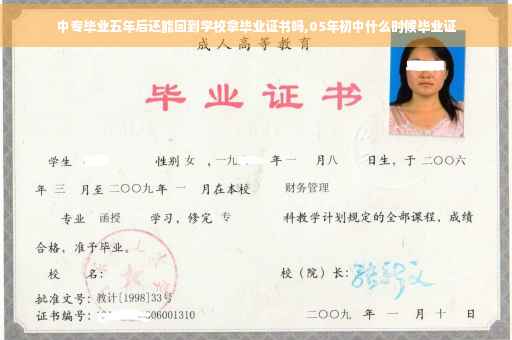 中专毕业五年后还能回到学校拿毕业证书吗,05年初中什么时候毕业证
成人高等教育
毕业证书
学生 性别 女 ,一九 年 一 月八 日生,于 二〇〇六
年 三 月至 二〇〇九 年 一 月在本校 财务管理
专业 函授 学习,修完 专 科教学计划规定的全部课程,成绩
合格,准予毕业。
校 名: 校(院)长:
批准文号: 教计[1998]33号
证书编号: 006001310 二〇〇九 年 一 月 十 日